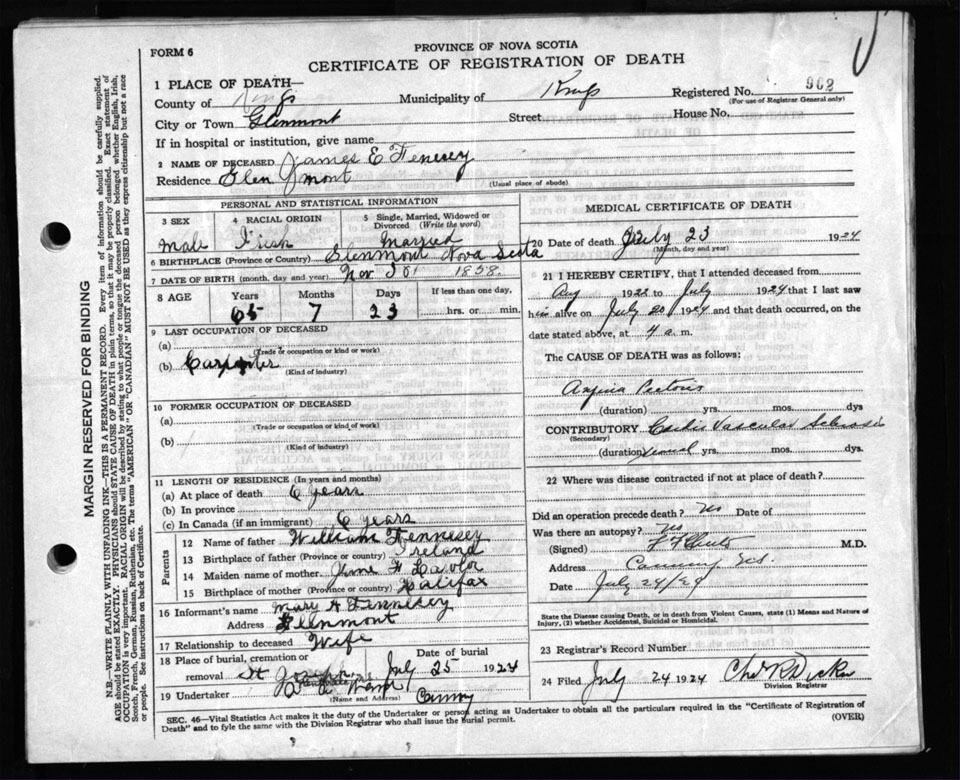 FORM 6
PROVINCE OF NOVA SCOTIA
CERTIFICATE OF REGISTRATION OF DEATH
1 PLACE OF DEATH—
County of Kings Municipality of Kings Registered No. 962
(For use of Registrar General only)
City or Town Glenmont Street House No.
If in hospital or institution, give name
2 NAME OF DECEASED James E Fenesey
Residence Glen mont
(Usual place of abode)
PERSONAL AND STATISTICAL INFORMATION
3 SEX Male
4 RACIAL ORIGIN Irish
5 Single, Married, Widowed or Divorced (Write the word) Married
6 BIRTHPLACE (Province or Country) Glenmont Nova Scotia
7 DATE OF BIRTH (month, day and year) Nov 30 1858
8 AGE Years 65 Months 7 Days 23 If less than one day, hrs. or min.
9 LAST OCCUPATION OF DECEASED
(a)
(Trade or occupation or kind of work)
(b) Carpenter
(Kind of industry)
10 FORMER OCCUPATION OF DECEASED
(a)
(Trade or occupation or kind of work)
(b)
(Kind of industry)
11 LENGTH OF RESIDENCE (In years and months)
(a) At place of death 6 years
(b) In province
(c) In Canada (if an immigrant) 6 years
Parents
12 Name of father William Fennesey
13 Birthplace of father (Province or country) Ireland
14 Maiden name of mother Jane
15 Birthplace of mother (Province or country) Halifax
16 Informant's name Mary A Finnesey
Address Glenmont
17 Relationship to deceased Wife
18 Place of burial, cremation or removal St Joseph Date of burial July 25 1924
19 Undertaker Canning
(Name and Address)
MEDICAL CERTIFICATE OF DEATH
20 Date of death July 23 1924
(Month, day and year)
21 I HEREBY CERTIFY, that I attended deceased from
Aug 1922 to July 1924 that I last saw
him alive on July 20 1924 and that death occurred, on the
date stated above, at 4 a. m.
The CAUSE OF DEATH was as follows:
Angina Pectoris
(duration) yrs. mos. dys
CONTRIBUTORY Cardio Vascular Sclerosis
(Secondary)
(duration) several yrs. mos. dys.
22 Where was disease contracted if not at place of death?
Did an operation precede death? no Date of
Was there an autopsy? no
(Signed) M.D.
Address Canning N.S.
Date July 24/24
State the Disease causing Death, or in death from Violent Causes, state (1) Means and Nature of
Injury, (2) whether Accidental, Suicidal or Homicidal.
23 Registrar's Record Number
24 Filed July 24 1924
Division Registrar
SEC. 46—Vital Statistics Act makes it the duty of the Undertaker or person acting as Undertaker to obtain all the particulars required in the "Certificate of Registration of
Death" and to fyle the same with the Division Registrar who shall issue the burial permit. (OVER)
MARGIN RESERVED FOR BINDING
N.B.—WRITE PLAINLY WITH UNFADING INK—THIS IS A PERMANENT RECORD. Every item of information should be carefully supplied.
AGE should be stated EXACTLY. PHYSICIANS should STATE CAUSE OF DEATH in plain terms, so that it may be properly classified. Exact statement of
OCCUPATION is very important. RACIAL ORIGIN will be described by stating to what people or tongue the deceased person belonged whether English, Irish,
Scotch, French, German, Russian, Ruthenian, etc. The terms "AMERICAN" or "CANADIAN" MUST NOT BE USED as they express citizenship but not a race
or people. See instructions on back of Certificate.